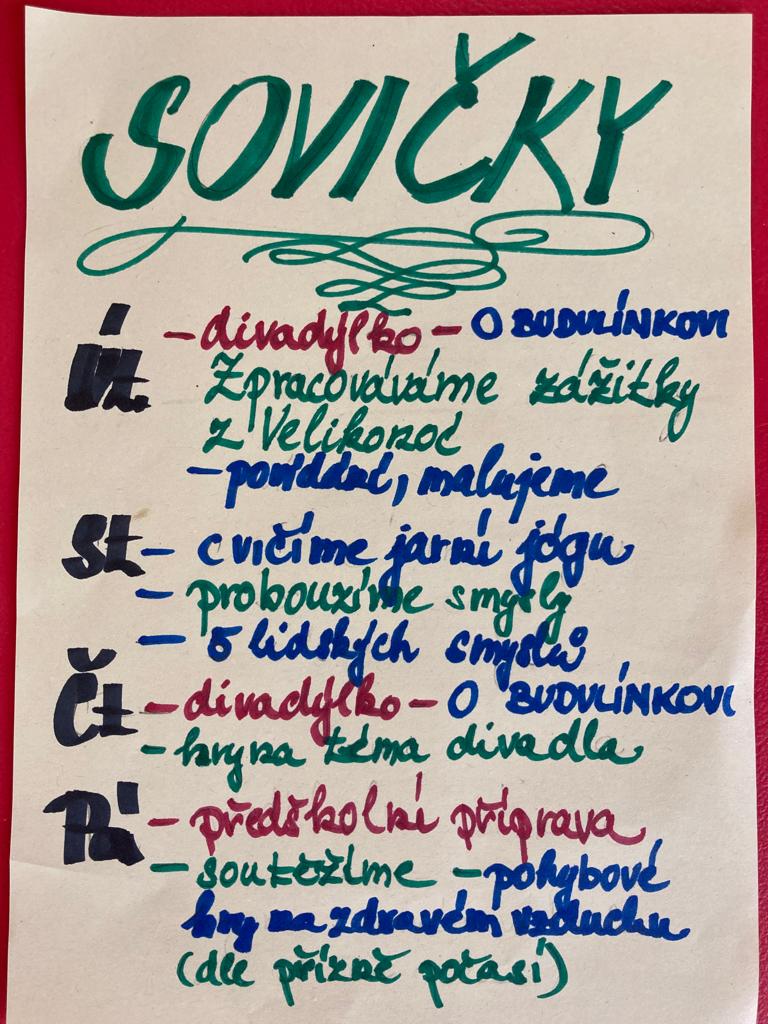 SOVIČKY
Út. – divadýlko – O BUDULÍNKOVI
Zpracováváme zážitky
z Velikonoc
– povídání, malujeme
St – cvičíme jarní jógu
– probouzíme smysly
– 5 lidských smyslů
Čt – divadýlko – O BUDULÍNKOVI
– hry na téma divadla
Pá – předškolní příprava
– soutěžíme – pohybové
hry na zdravém vzduchu
(dle přízně počasí)